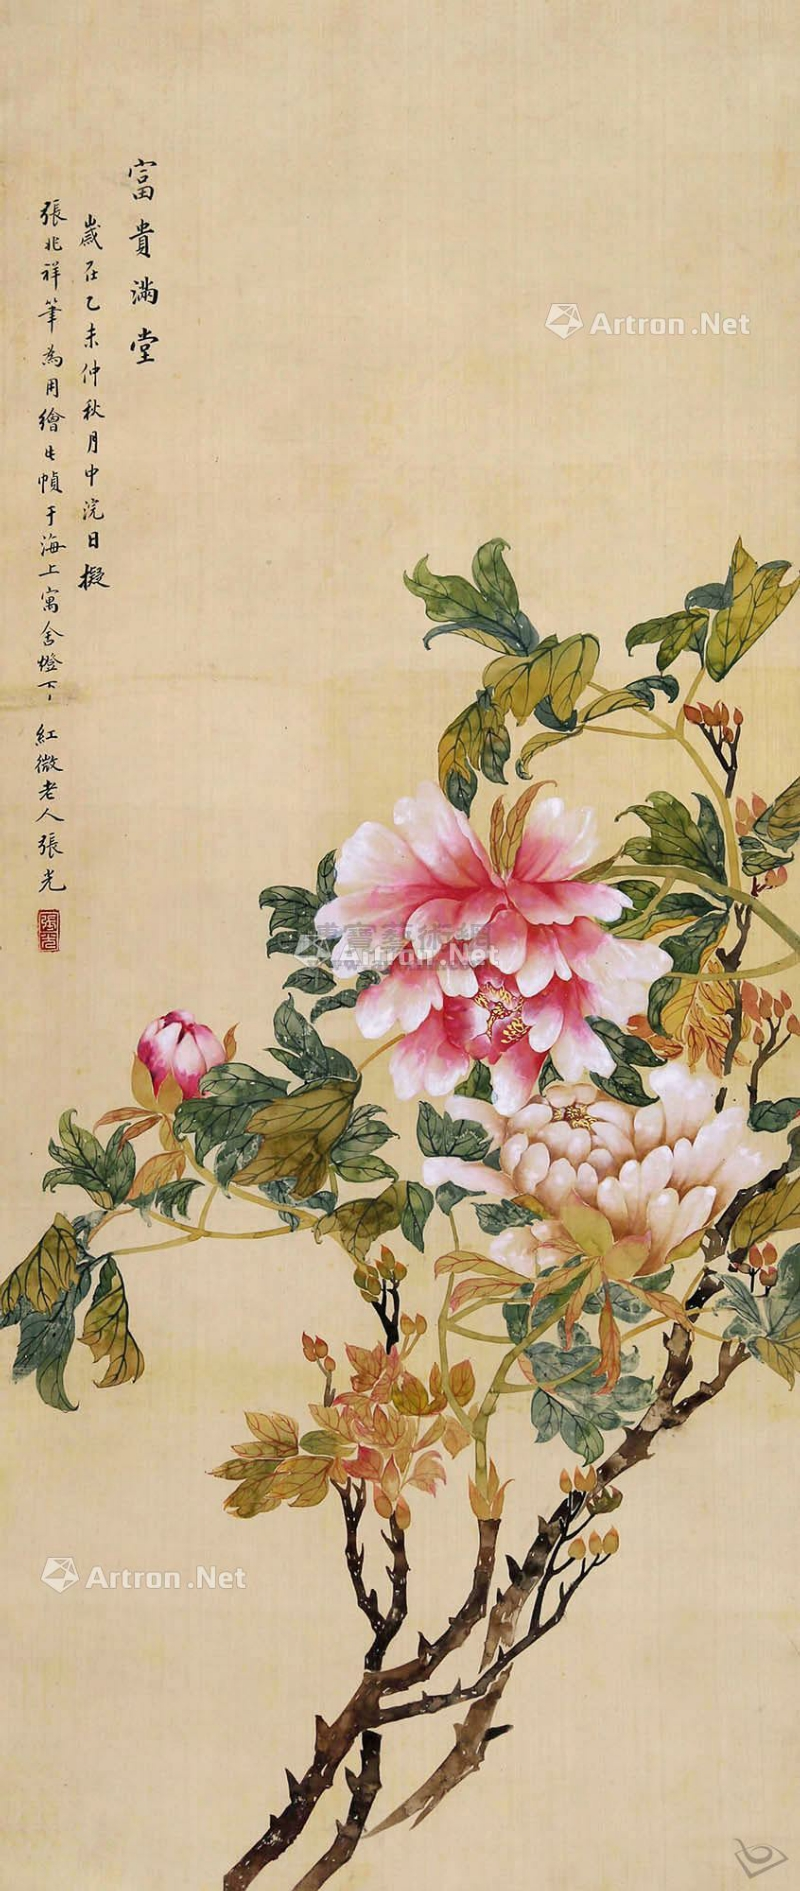 富貴滿堂
歲在乙未仲秋月中浣日擬
張兆祥筆為用繪此幀于海上寓舍燈下 紅薇老人張光
張光
Artron.Net
Artron.Net
Artron.Net
博寶藝術網